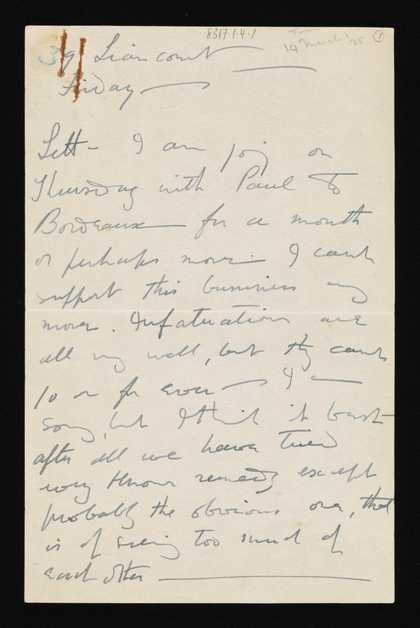 8317.1.4.1
14 March '25 1
39 Liancourt
Friday
Lett - I am going on
Thursday with Paul to
Bordeaux - for a month
or perhaps more - I can't
support this business any
more. Infatuations are
all very well, but they can't
go on for ever - I am
sorry, but I think it best
after all we have tried
every known remedy except
probably the obvious one, that
is of seeing too much of
each other